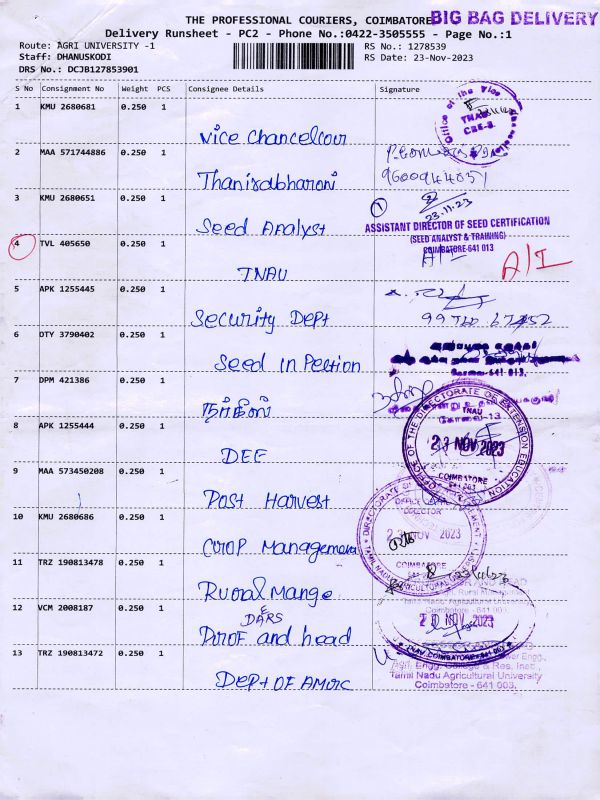 THE PROFESSIONAL COURIERS, COIMBATORE
BIG BAG DELIVERY
Delivery Runsheet - PC2 - Phone No.:0422-3505555 - Page No.:1
Route: AGRI UNIVERSITY -1
RS No.: 1278539
Staff: DHANUSKODI
RS Date: 23-Nov-2023
DRS No.: DCJB127853901
S No Consignment No Weight PCS Consignee Details Signature
1 KMU 2680681 0.250 1
Vice Chancellour
Office of the Vice
TNAU
CBE-3
2 MAA 571744886 0.250 1
Thanirabharani
9600944051
3 KMU 2680651 0.250 1
Seed Analyst
1
23.11.23
ASSISTANT DIRECTOR OF SEED CERTIFICATION
(SEED ANALYST & TRAINING)
COIMBATORE-641 013
4 TVL 405650 0.250 1
TNAU
A/I
A/I
5 APK 1255445 0.250 1
Security Dept
6 DTY 3790402 0.250 1
Seed In Pection
7 DPM 421386 0.250 1
8 APK 1255444 0.250 1
DEE
OFFICE OF THE DIRECTORATE OF EXTENSION EDUCATION
TNAU
23 NOV 2023
COIMBATORE
9 MAA 573450208 0.250 1
Post Harvest
10 KMU 2680686 0.250 1
Crop Management
23 NOV 2023
COIMBATORE
11 TRZ 190813478 0.250 1
Rural Mange
Coimbatore - 641 003
12 VCM 2008187 0.250 1
DARS
Prof and head
NOV 2023
TNAU, COIMBATORE-641 003
13 TRZ 190813472 0.250 1
Dept OF AMRC
Agri. Engg. College & Res. Inst.,
Tamil Nadu Agricultural University
Coimbatore - 641 003.